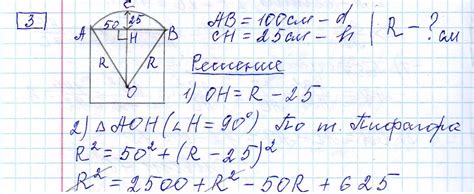 3
C
50 25
A H B
R R
O
AB = 100 см – d
CH = 25 см – h
R – ? см
Решение
1) OH = R – 25
2) △ AOH (∠H = 90°) По т. Пифагора
R² = 50² + (R – 25)²
R² = 2500 + R² – 50R + 625